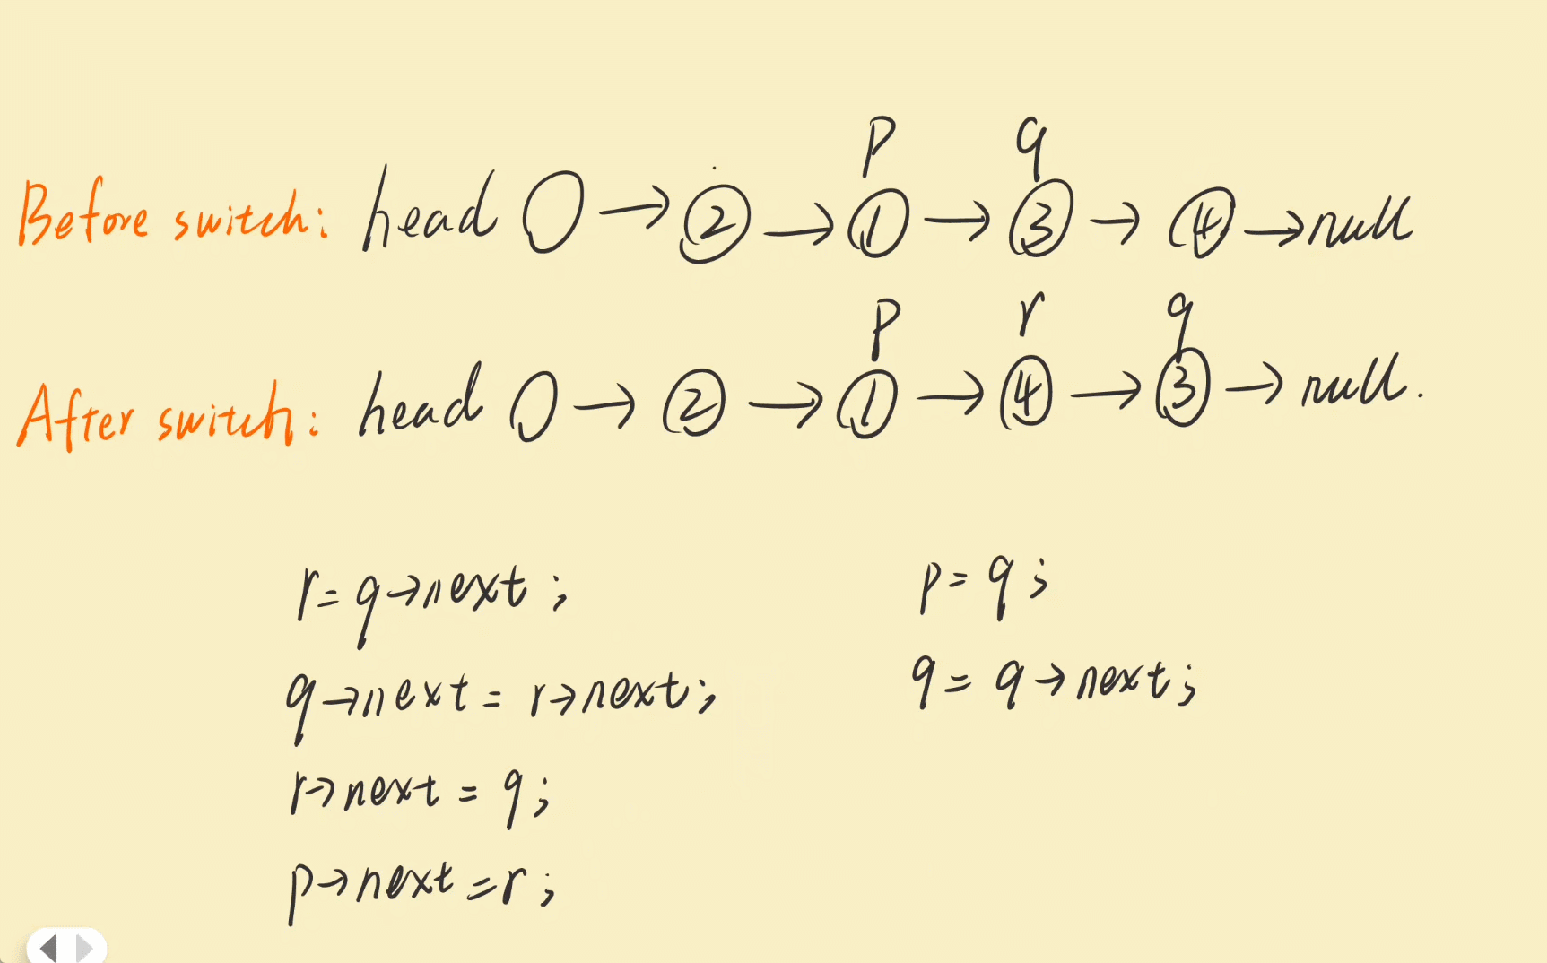 p q
Before switch: head → ② → ① → ③ → ④ → null
p r q
After switch: head → ② → ① → ④ → ③ → null.
r = q→next;
q→next = r→next;
r→next = q;
p→next = r;
p = q;
q = q→next;